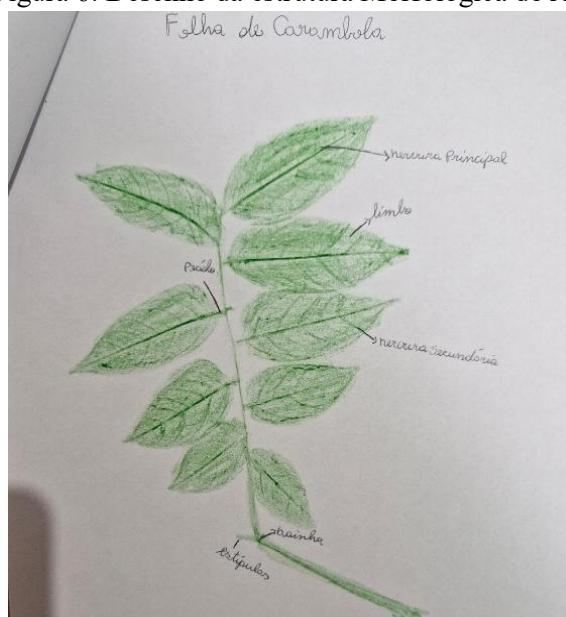 Folha de Carambola
nervura Principal
limbo
nervura secundária
bainha
estípulas